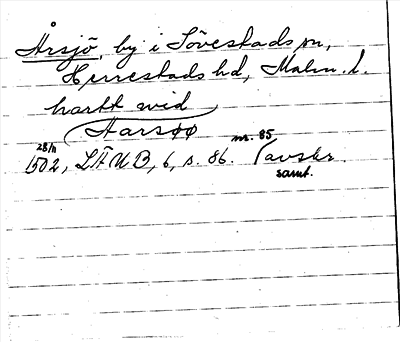 Årsjö, by i Sövestads sn,
Herrestads hd, Malm. l.
hartt wid
Aarsøø
28/11 1502, LÄUB, 6, s. 86. nr. 85 (avskr.
samt.